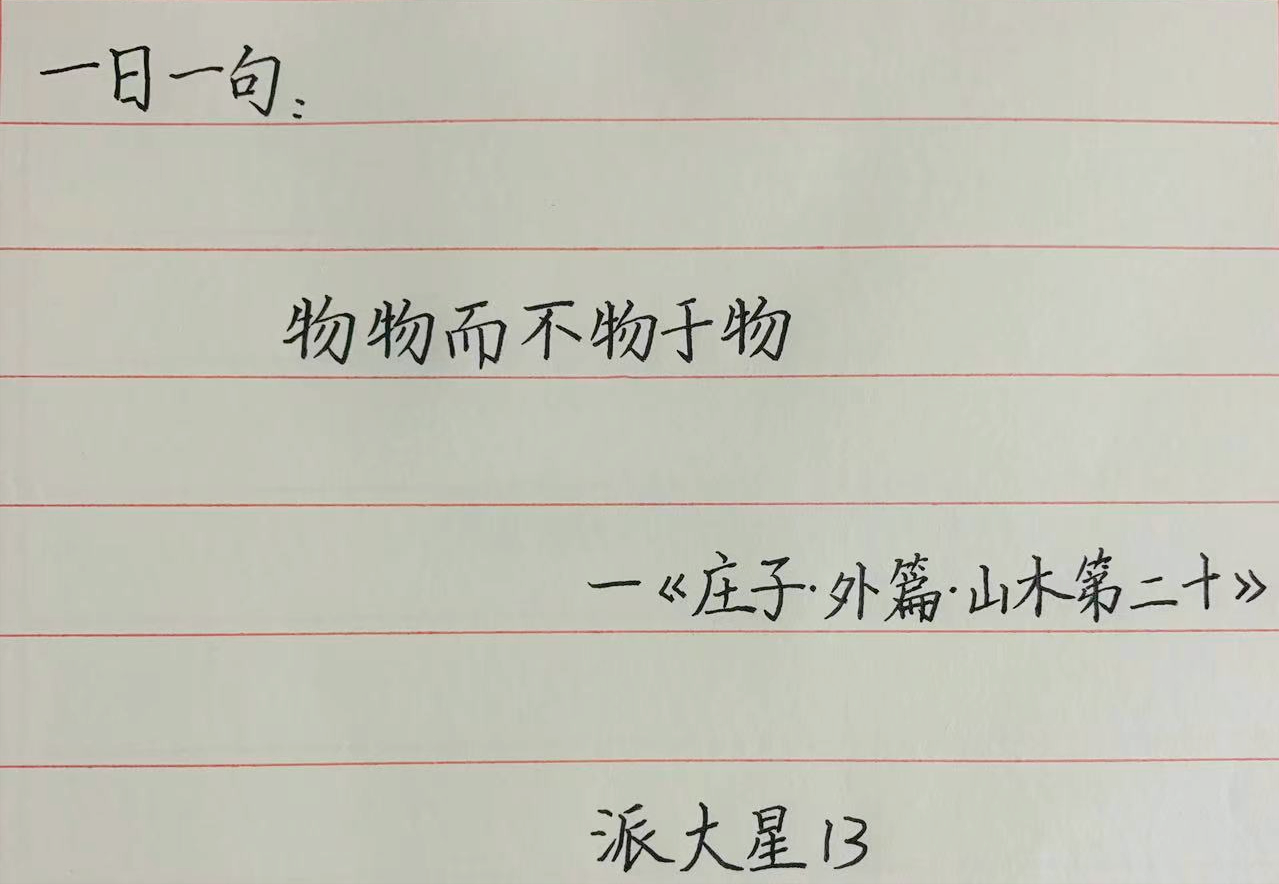 一日一句:
物物而不物于物
—《庄子·外篇·山木第二十》
派大星13